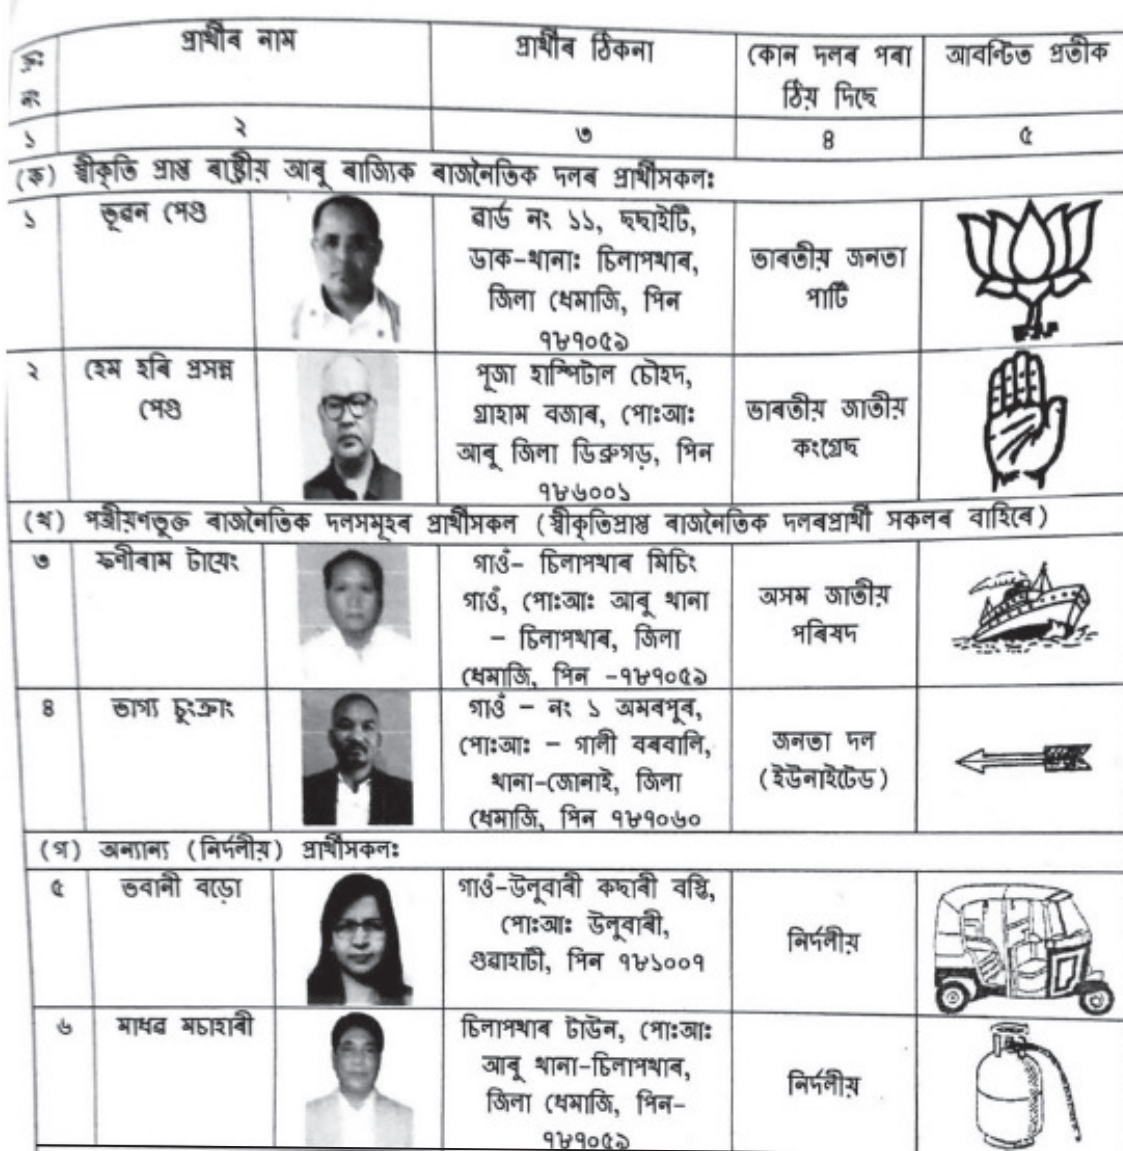 প্ৰাৰ্থীৰ নাম
প্ৰাৰ্থীৰ ঠিকনা
কোন দলৰ পৰা
ঠিয় দিছে
আবণ্টিত প্ৰতীক
১ ২ ৩ ৪ ৫
(ক) স্বীকৃতি প্ৰাপ্ত ৰাষ্ট্ৰীয় আৰু ৰাজ্যিক ৰাজনৈতিক দলৰ প্ৰাৰ্থীসকলঃ
১
ভূৱন পেগু
ৱাৰ্ড নং ১১, ছছাইটি,
ডাক-থানাঃ চিলাপথাৰ,
জিলা ধেমাজি, পিন
৭৮৭০৫৯
ভাৰতীয় জনতা
পাৰ্টি
২
হেম হৰি প্ৰসন্ন
পেগু
পূজা হাস্পিটাল চৌহদ,
গ্ৰাহাম বজাৰ, পোঃআঃ
আৰু জিলা ডিব্ৰুগড়, পিন
৭৮৬০০১
ভাৰতীয় জাতীয়
কংগ্ৰেছ
(খ) পঞ্জীয়ণভুক্ত ৰাজনৈতিক দলসমূহৰ প্ৰাৰ্থীসকল (স্বীকৃতিপ্ৰাপ্ত ৰাজনৈতিক দলৰপ্ৰাৰ্থী সকলৰ বাহিৰে)
৩
ফণীৰাম টায়েং
গাওঁ- চিলাপথাৰ মিচিং
গাওঁ, পোঃআঃ আৰু থানা
- চিলাপথাৰ, জিলা
ধেমাজি, পিন -৭৮৭০৫৯
অসম জাতীয়
পৰিষদ
৪
ভাগ্য চুংক্ৰাং
গাওঁ - নং ১ অমৰপুৰ,
পোঃআঃ - গালী বৰবালি,
থানা-জোনাই, জিলা
ধেমাজি, পিন ৭৮৭০৬০
জনতা দল
(ইউনাইটেড)
(গ) অন্যান্য (নিৰ্দলীয়) প্ৰাৰ্থীসকলঃ
৫
ভবানী বড়ো
গাওঁ-উলুবাৰী কছাৰী বস্তি,
পোঃআঃ উলুবাৰী,
গুৱাহাটী, পিন ৭৮১০০৭
নিৰ্দলীয়
৬
মাধৱ মচাহাৰী
চিলাপথাৰ টাউন, পোঃআঃ
আৰু থানা-চিলাপথাৰ,
জিলা ধেমাজি, পিন-
৭৮৭০৫৯
নিৰ্দলীয়